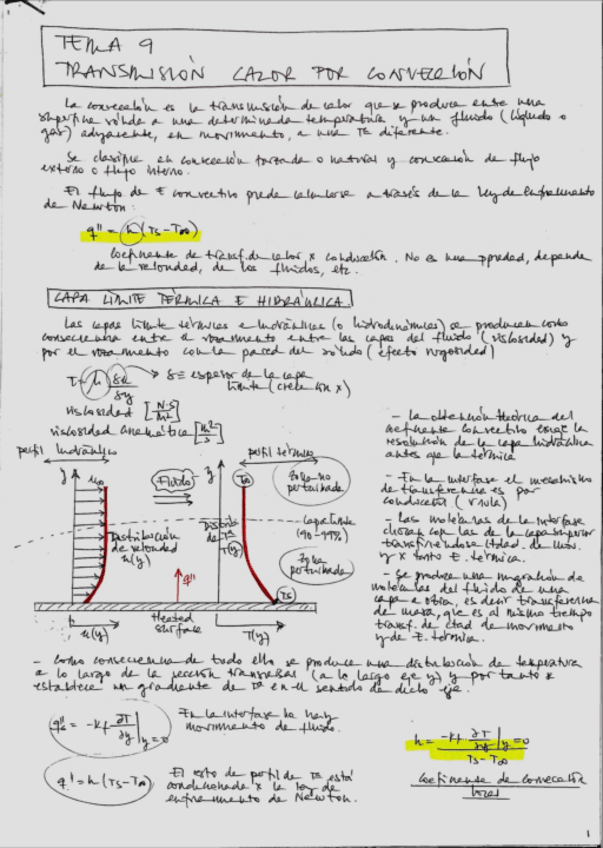 TEMA 9
TRANSMISIÓN CALOR POR CONVECCIÓN
La convección es la transmisión de calor que se produce entre una
superficie sólida a una determinada temperatura y un fluido (líquido o
gas) adyacente, en movimiento, a una Tª diferente.
Se clasifica en convección forzada o natural y convección de flujo
externo o flujo interno.
El flujo de E convectivo puede calcularse a través de la Ley de Enfriamiento
de Newton:
q'' = h(Ts-T∞)
Coeficiente de transf. de calor x conducción. No es una propiedad, depende
de la velocidad, de los fluidos, etc.
CAPA LÍMITE TÉRMICA E HIDRÁULICA.
Las capas límite térmicas e hidráulicas (o hidrodinámicas) se producen como
consecuencia entre el rozamiento entre las capas del fluido (viscosidad) y
por el rozamiento con la pared del sólido (efecto rugosidad)
δ = espesor de la capa
límite (crece con x)
viscosidad [N·s/m²]
viscosidad cinemática [m²/s]
perfil hidráulico
perfil térmico
y
u∞
Fluido
y
T∞
Zona no
perturbada
Distribución
de velocidad
u(y)
Distrib.
de Tª
T(y)
Capa límite
(90-99%)
Zona
perturbada
q''
Ts
u(y)
Heated
surface
T(y)
- La obtención teórica del
coeficiente convectivo exige la
resolución de la capa hidráulica
antes que la térmica
- En la interfase el mecanismo
de transferencia es por
conducción
- Las moléculas de la interfase
chocan con las de la capa superior
transfiriéndose ctdad. de mov.
y x tanto E. térmica.
- Se produce una migración de
moléculas del fluido de una
capa a otra, es decir transferencia
de masa, que es al mismo tiempo
transf. de ctdad de movimiento
y de E. térmica.
- Como consecuencia de todo ello se produce una distribución de temperatura
a lo largo de la sección transversal (a lo largo eje y) y por tanto x
establece un gradiente de Tª en el sentido de dicho eje.
q''s = -kf ∂T/∂y |y=0
En la interfase no hay
movimiento de fluido.
h = -kf ∂T/∂y |y=0 / Ts-T∞
q'' = h(Ts-T∞)
El resto de perfil de Tª está
condicionada x la ley de
enfriamiento de Newton.
Coeficiente de convección
local
1